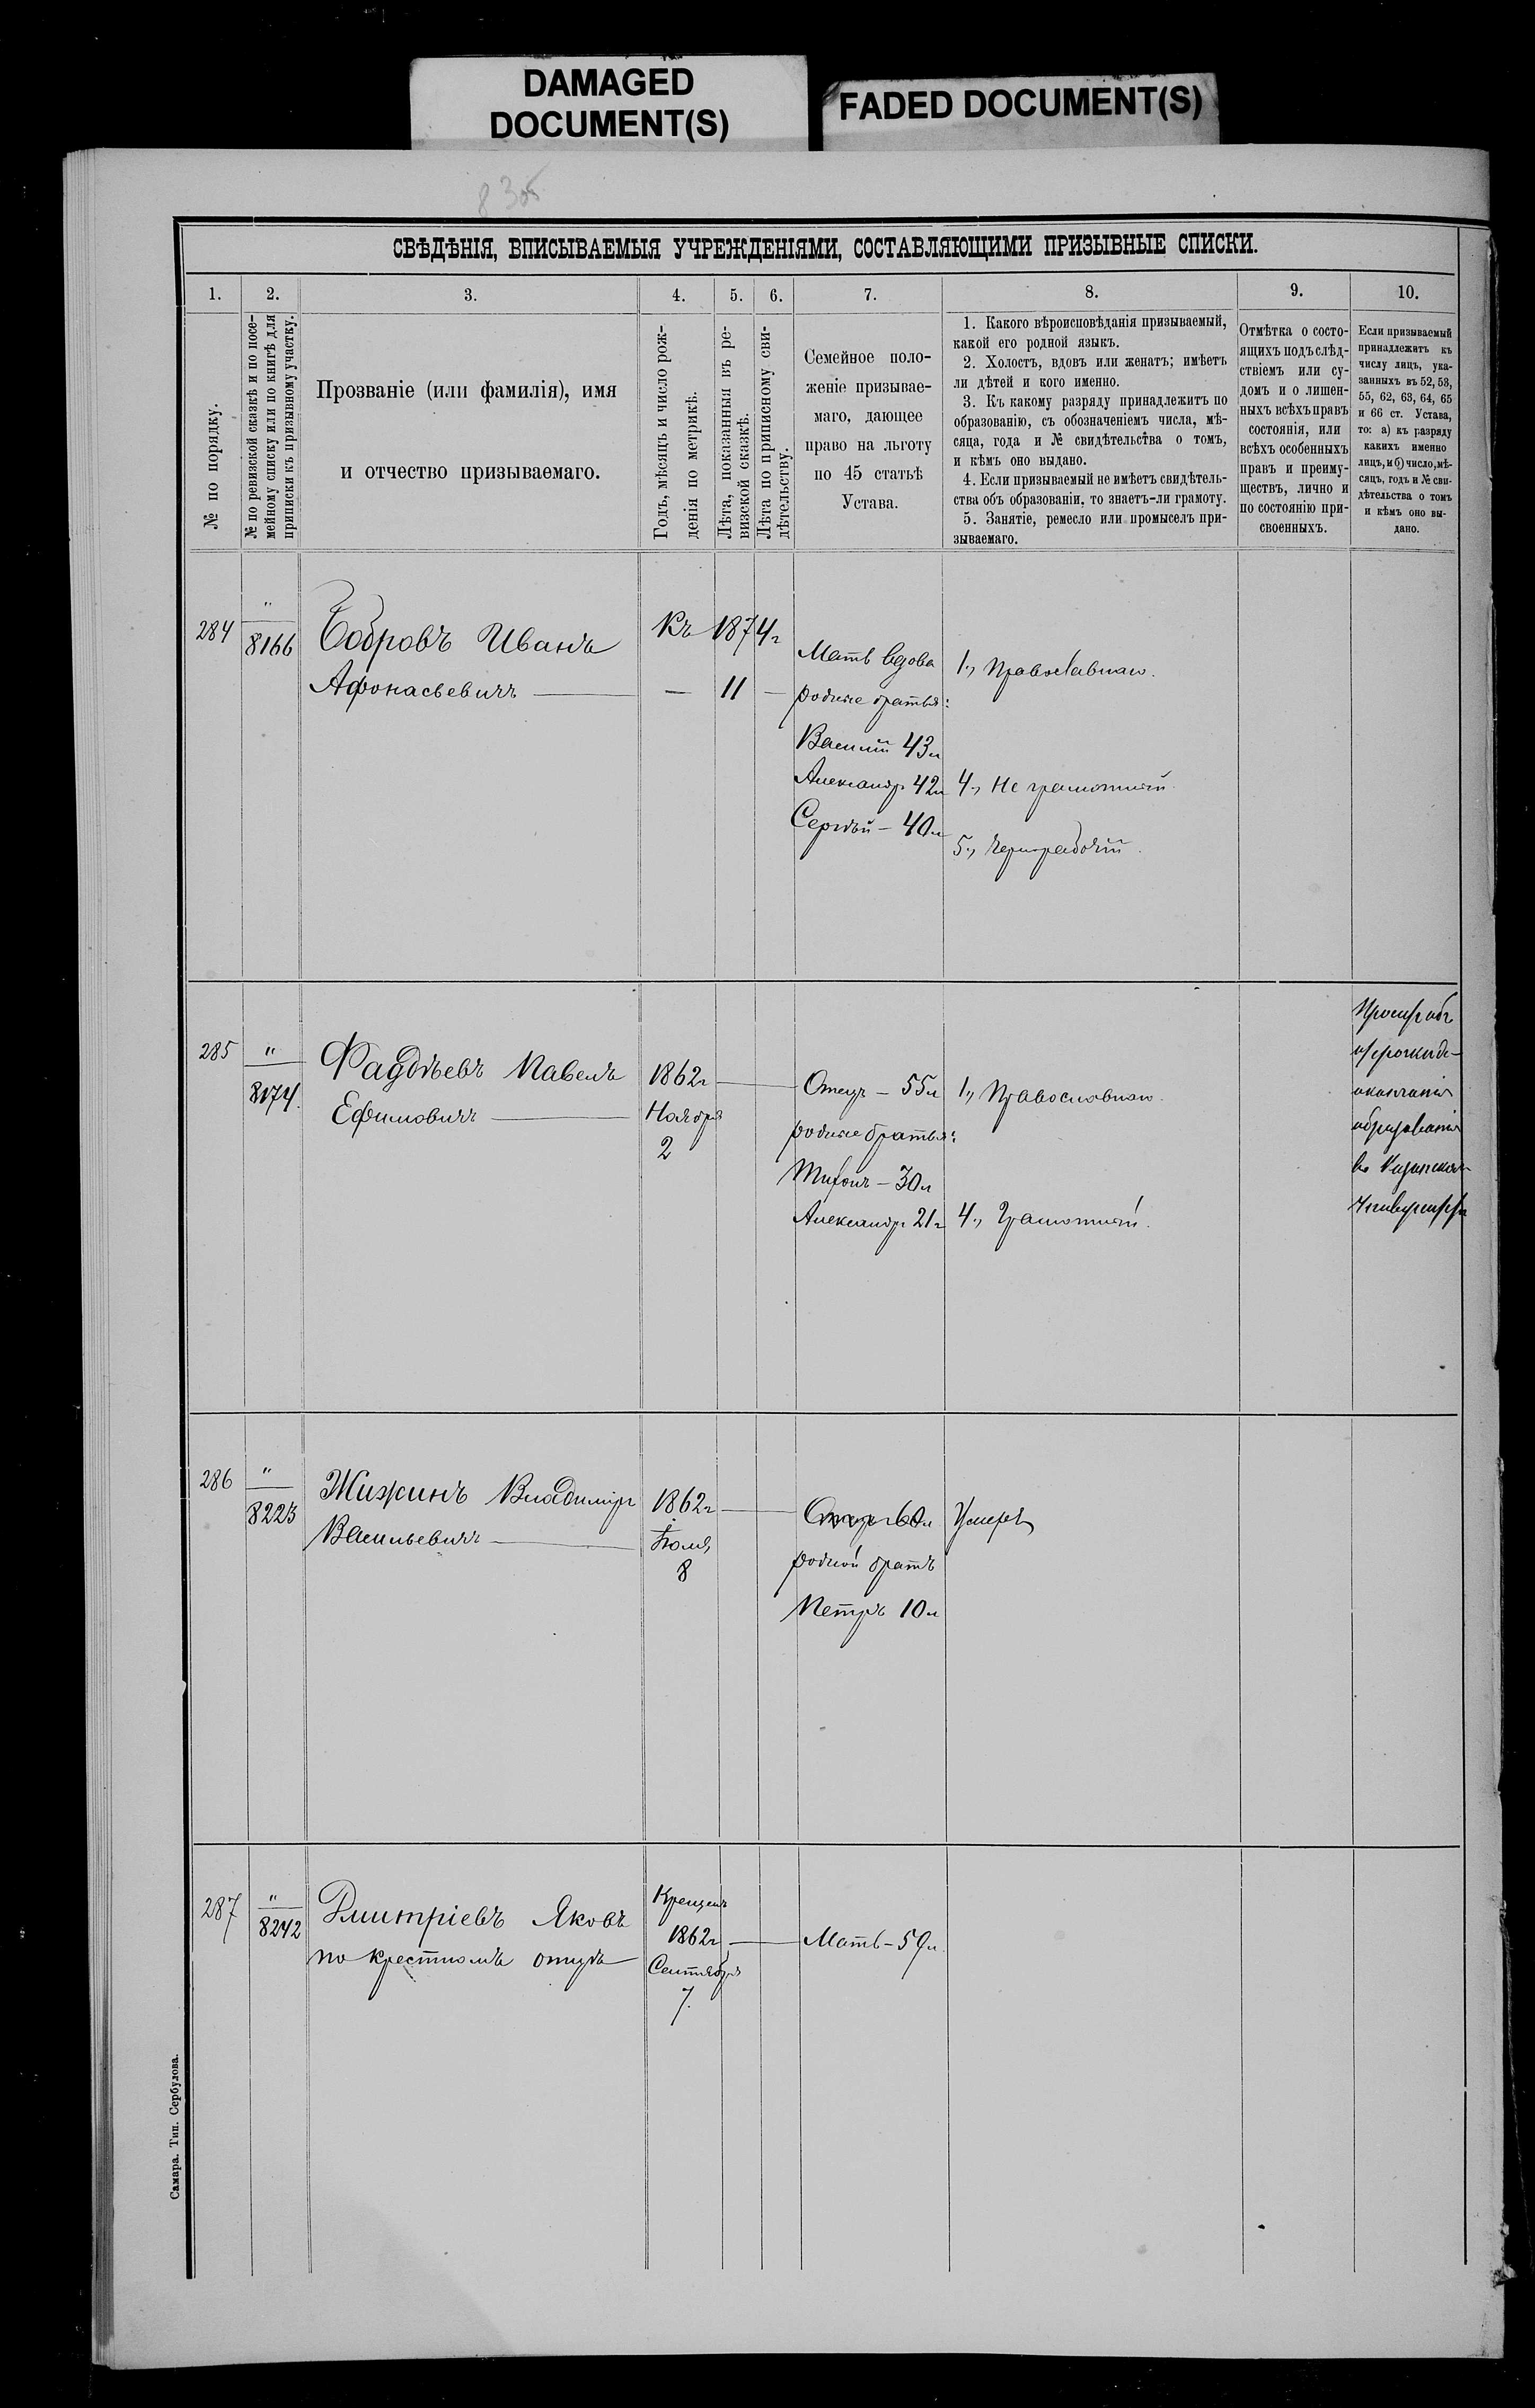 DAMAGED
DOCUMENT(S)
FADED DOCUMENT(S)
СВѢДѢНІЯ, ВПИСЫВАЕМЫЯ УЧРЕЖДЕНІЯМИ, СОСТАВЛЯЮЩИМИ ПРИЗЫВНЫЕ СПИСКИ.
1.
2.
3.
4.
5.
6.
7.
8.
9.
10.
№ по порядку.
№ по ревизской сказкѣ и по посе-
мейному списку или по книгѣ для
приписки къ призывному участку.
Прозваніе (или фамилія), имя
и отчество призываемаго.
Годъ, мѣсяцъ и число рож-
денія по метрикѣ.
Лѣта, показанныя въ ре-
визской сказкѣ.
Лѣта по приписному сви-
дѣтельству.
Семейное поло-
женіе призывае-
маго, дающее
право на льготу
по 45 статьѣ
Устава.
1. Какого вѣроисповѣданія призываемый,
какой его родной языкъ.
2. Холостъ, вдовъ или женатъ; имѣетъ
ли дѣтей и кого именно.
3. Къ какому разряду принадлежитъ по
образованію, съ обозначеніемъ числа, мѣ-
сяца, года и № свидѣтельства о томъ,
и кѣмъ оно выдано.
4. Если призываемый не имѣетъ свидѣтель-
ства объ образованіи, то знаетъ-ли грамоту.
5. Занятіе, ремесло или промыселъ при-
зываемаго.
Отмѣтка о состо-
ящихъ подъ слѣд-
ствіемъ или су-
домъ и о лишен-
ныхъ всѣхъ правъ
состоянія, или
всѣхъ особенныхъ
правъ и преиму-
ществъ, лично и
по состоянію при-
своенныхъ.
Если призываемый
принадлежитъ къ
числу лицъ, ука-
занныхъ въ 52, 53,
55, 62, 63, 64, 65
и 66 ст. Устава,
то: а) къ разряду
какихъ именно
лицъ, и б) число, мѣ-
сяцъ, годъ и № сви-
дѣтельства о томъ
и кѣмъ оно вы-
дано.
284
"
8166
Бобровъ Иванъ
Афонасьевичъ
Къ 1874г
— 11 —
Мать вдова
родные братья:
Василій 43л
Александръ 42л
Сергѣй — 40л
1., Православнаго.
4., Не грамотный.
5., Чернорабочій.
285
"
8174.
Фаддѣевъ Павелъ
Ефимовичъ
1862г
Ноября
2
Отецъ — 55л
родные братья:
Тифонъ — 30л
Александръ 21г
1., Православнаго.
4., Грамотный.
окончанія
образованія
въ Казанском
Университетѣ
286
"
8223
Жизкинъ Владиміръ
Васильевичъ
1862г
Іюля
8
Отецъ 60л
родной братъ
Петръ 10л
Умеръ
287
"
8242
Дмитріевъ Яковъ
по крестномъ отцѣ
Крещенъ
1862г
Сентября
7.
Мать — 59л.
Самара. Тип. Сербулова.